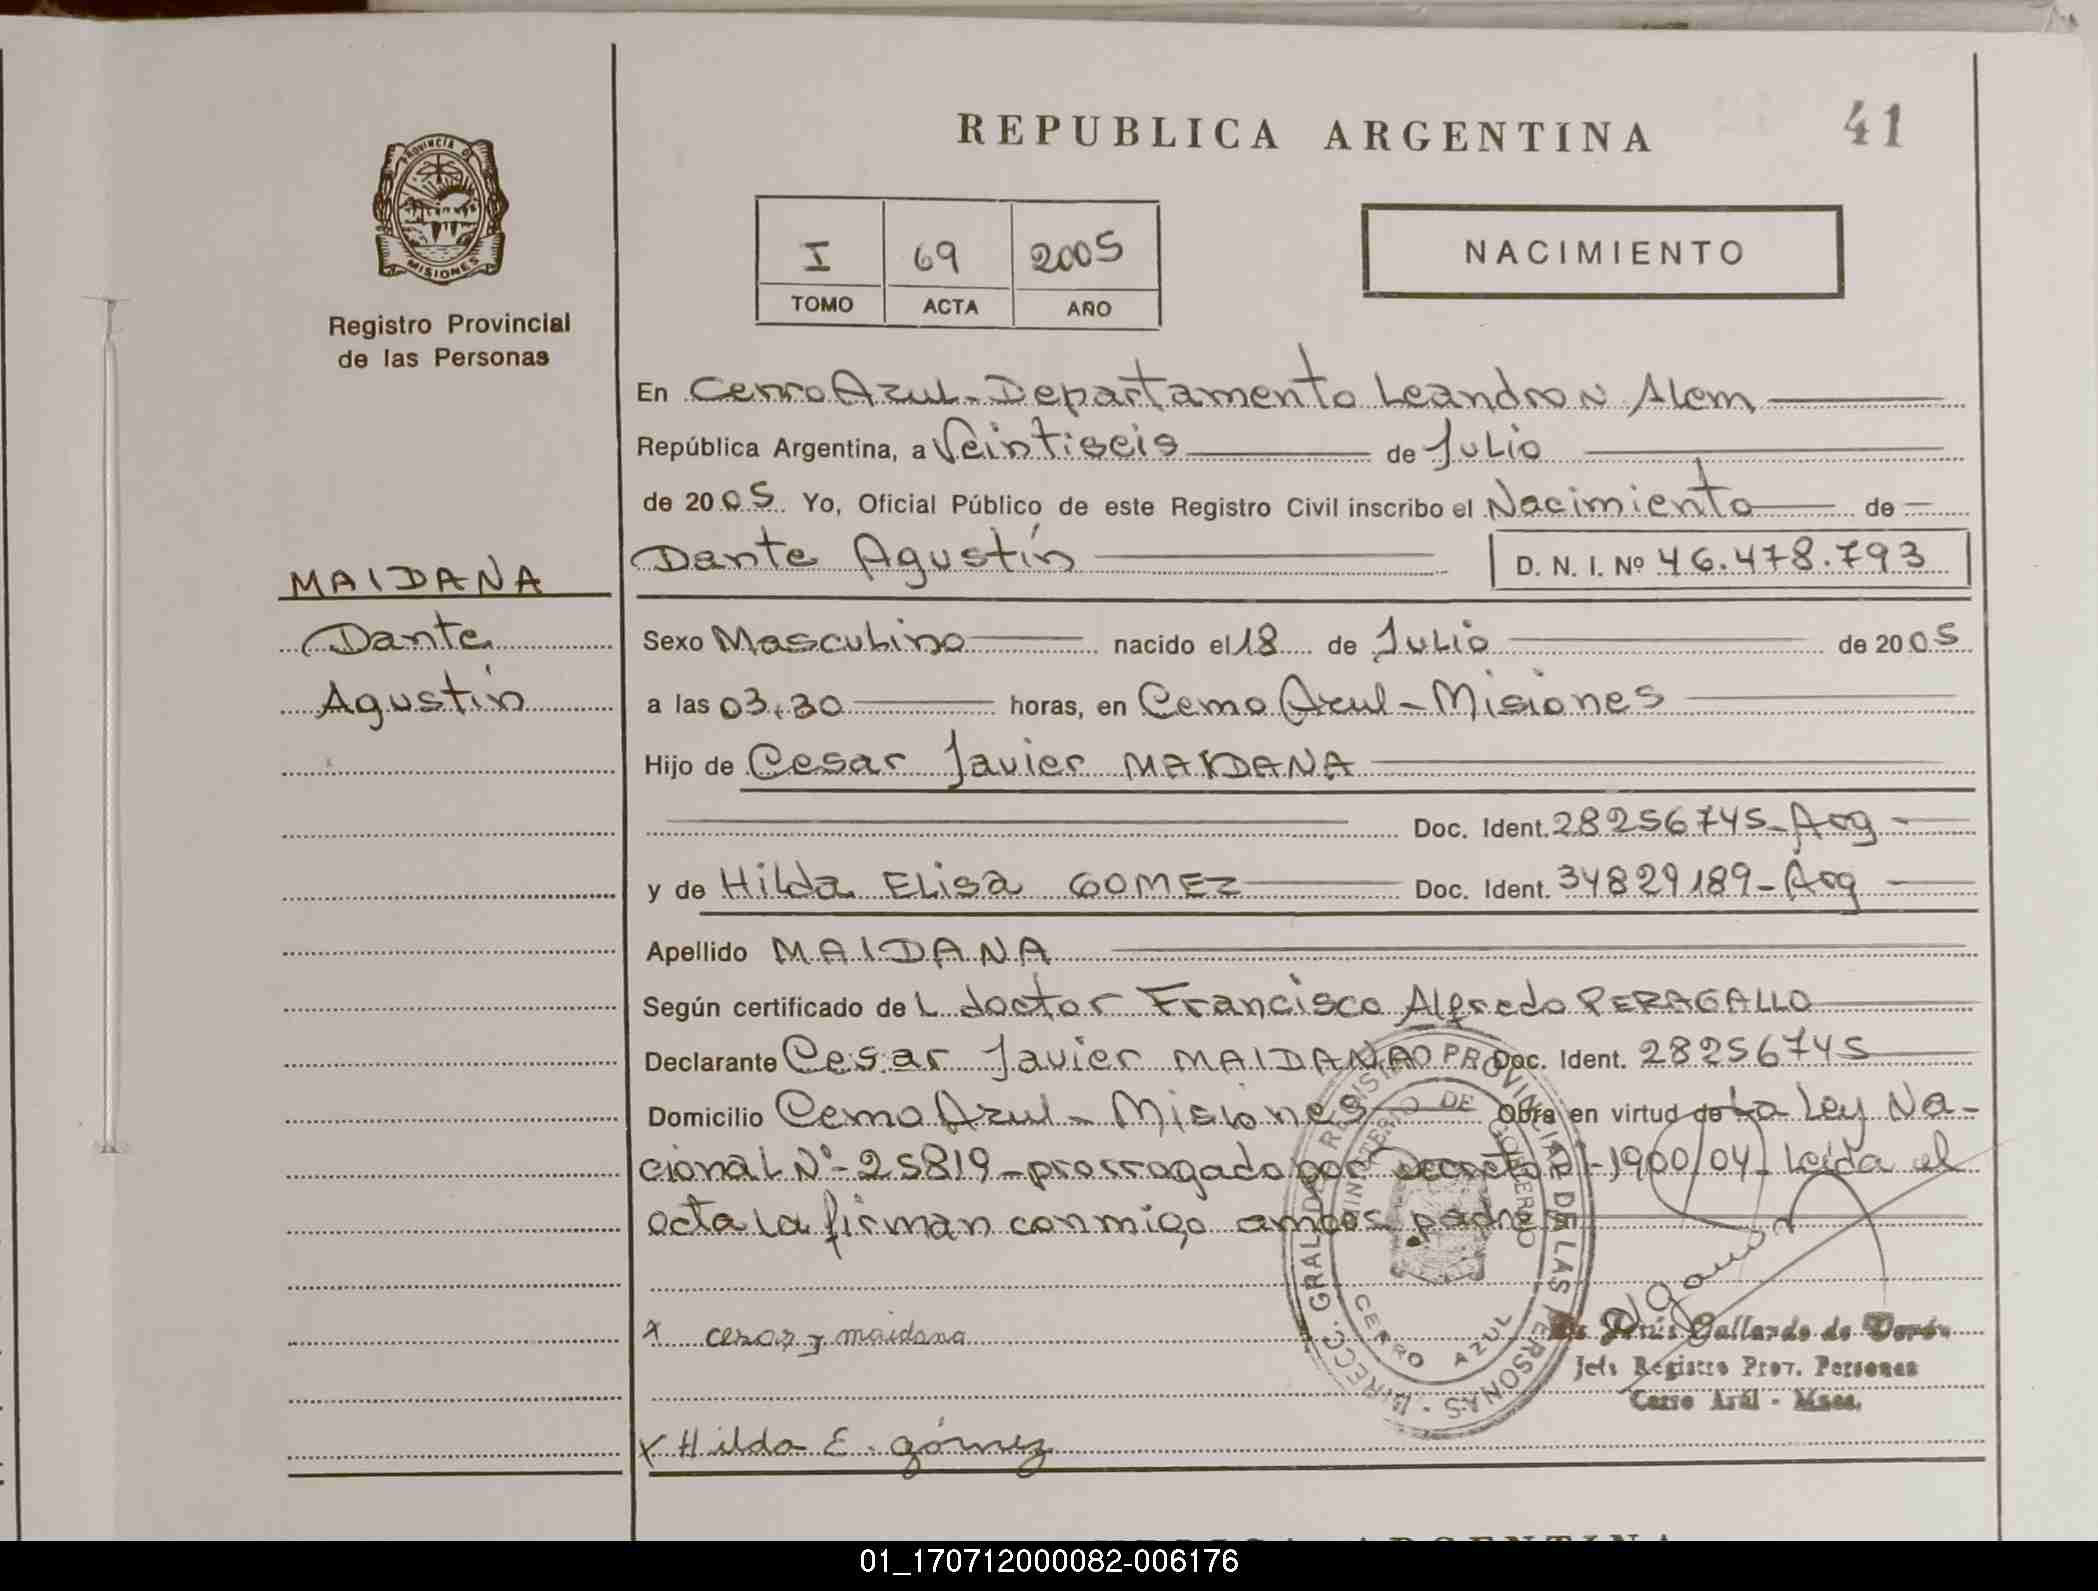 REPUBLICA ARGENTINA
41
PROVINCIA DE
MISIONES
Registro Provincial
de las Personas
I 69 2005
TOMO ACTA AÑO
NACIMIENTO
En Cerro Azul - Departamento Leandro N Alem
República Argentina, a Veintiseis de Julio
de 2005. Yo, Oficial Público de este Registro Civil inscribo el Nacimiento de
Dante Agustín D. N. I. Nº 46.478.793
MAIDANA
Dante
Agustin
Sexo Masculino nacido el 18 de Julio de 2005
a las 03,30 horas, en Cerro Azul - Misiones
Hijo de Cesar Javier MAIDANA
Doc. Ident. 28256745 - Arg
y de Hilda Elisa GOMEZ Doc. Ident. 34829189 - Arg
Apellido MAIDANA
Según certificado del doctor Francisco Alfredo PERAGALLO
Declarante Cesar Javier MAIDANA Doc. Ident. 28256745
Domicilio Cerro Azul - Misiones Obra en virtud de La Ley Na-
cional Nº - 25819 - prorrogado por Decreto Nº 1900/04 - Leída el
acta la firman conmigo ambos padres
DIRECC. GRAL. DEL REGISTRO PROVINCIAL DE LAS PERSONAS
MINISTERIO DE GOBIERNO
CERRO AZUL
x cesar j maidana
Gallardo de
Jefe Registro Prov. Personas
Cerro Azul - Mnes.
x Hilda E. gómez
01_170712000082-006176